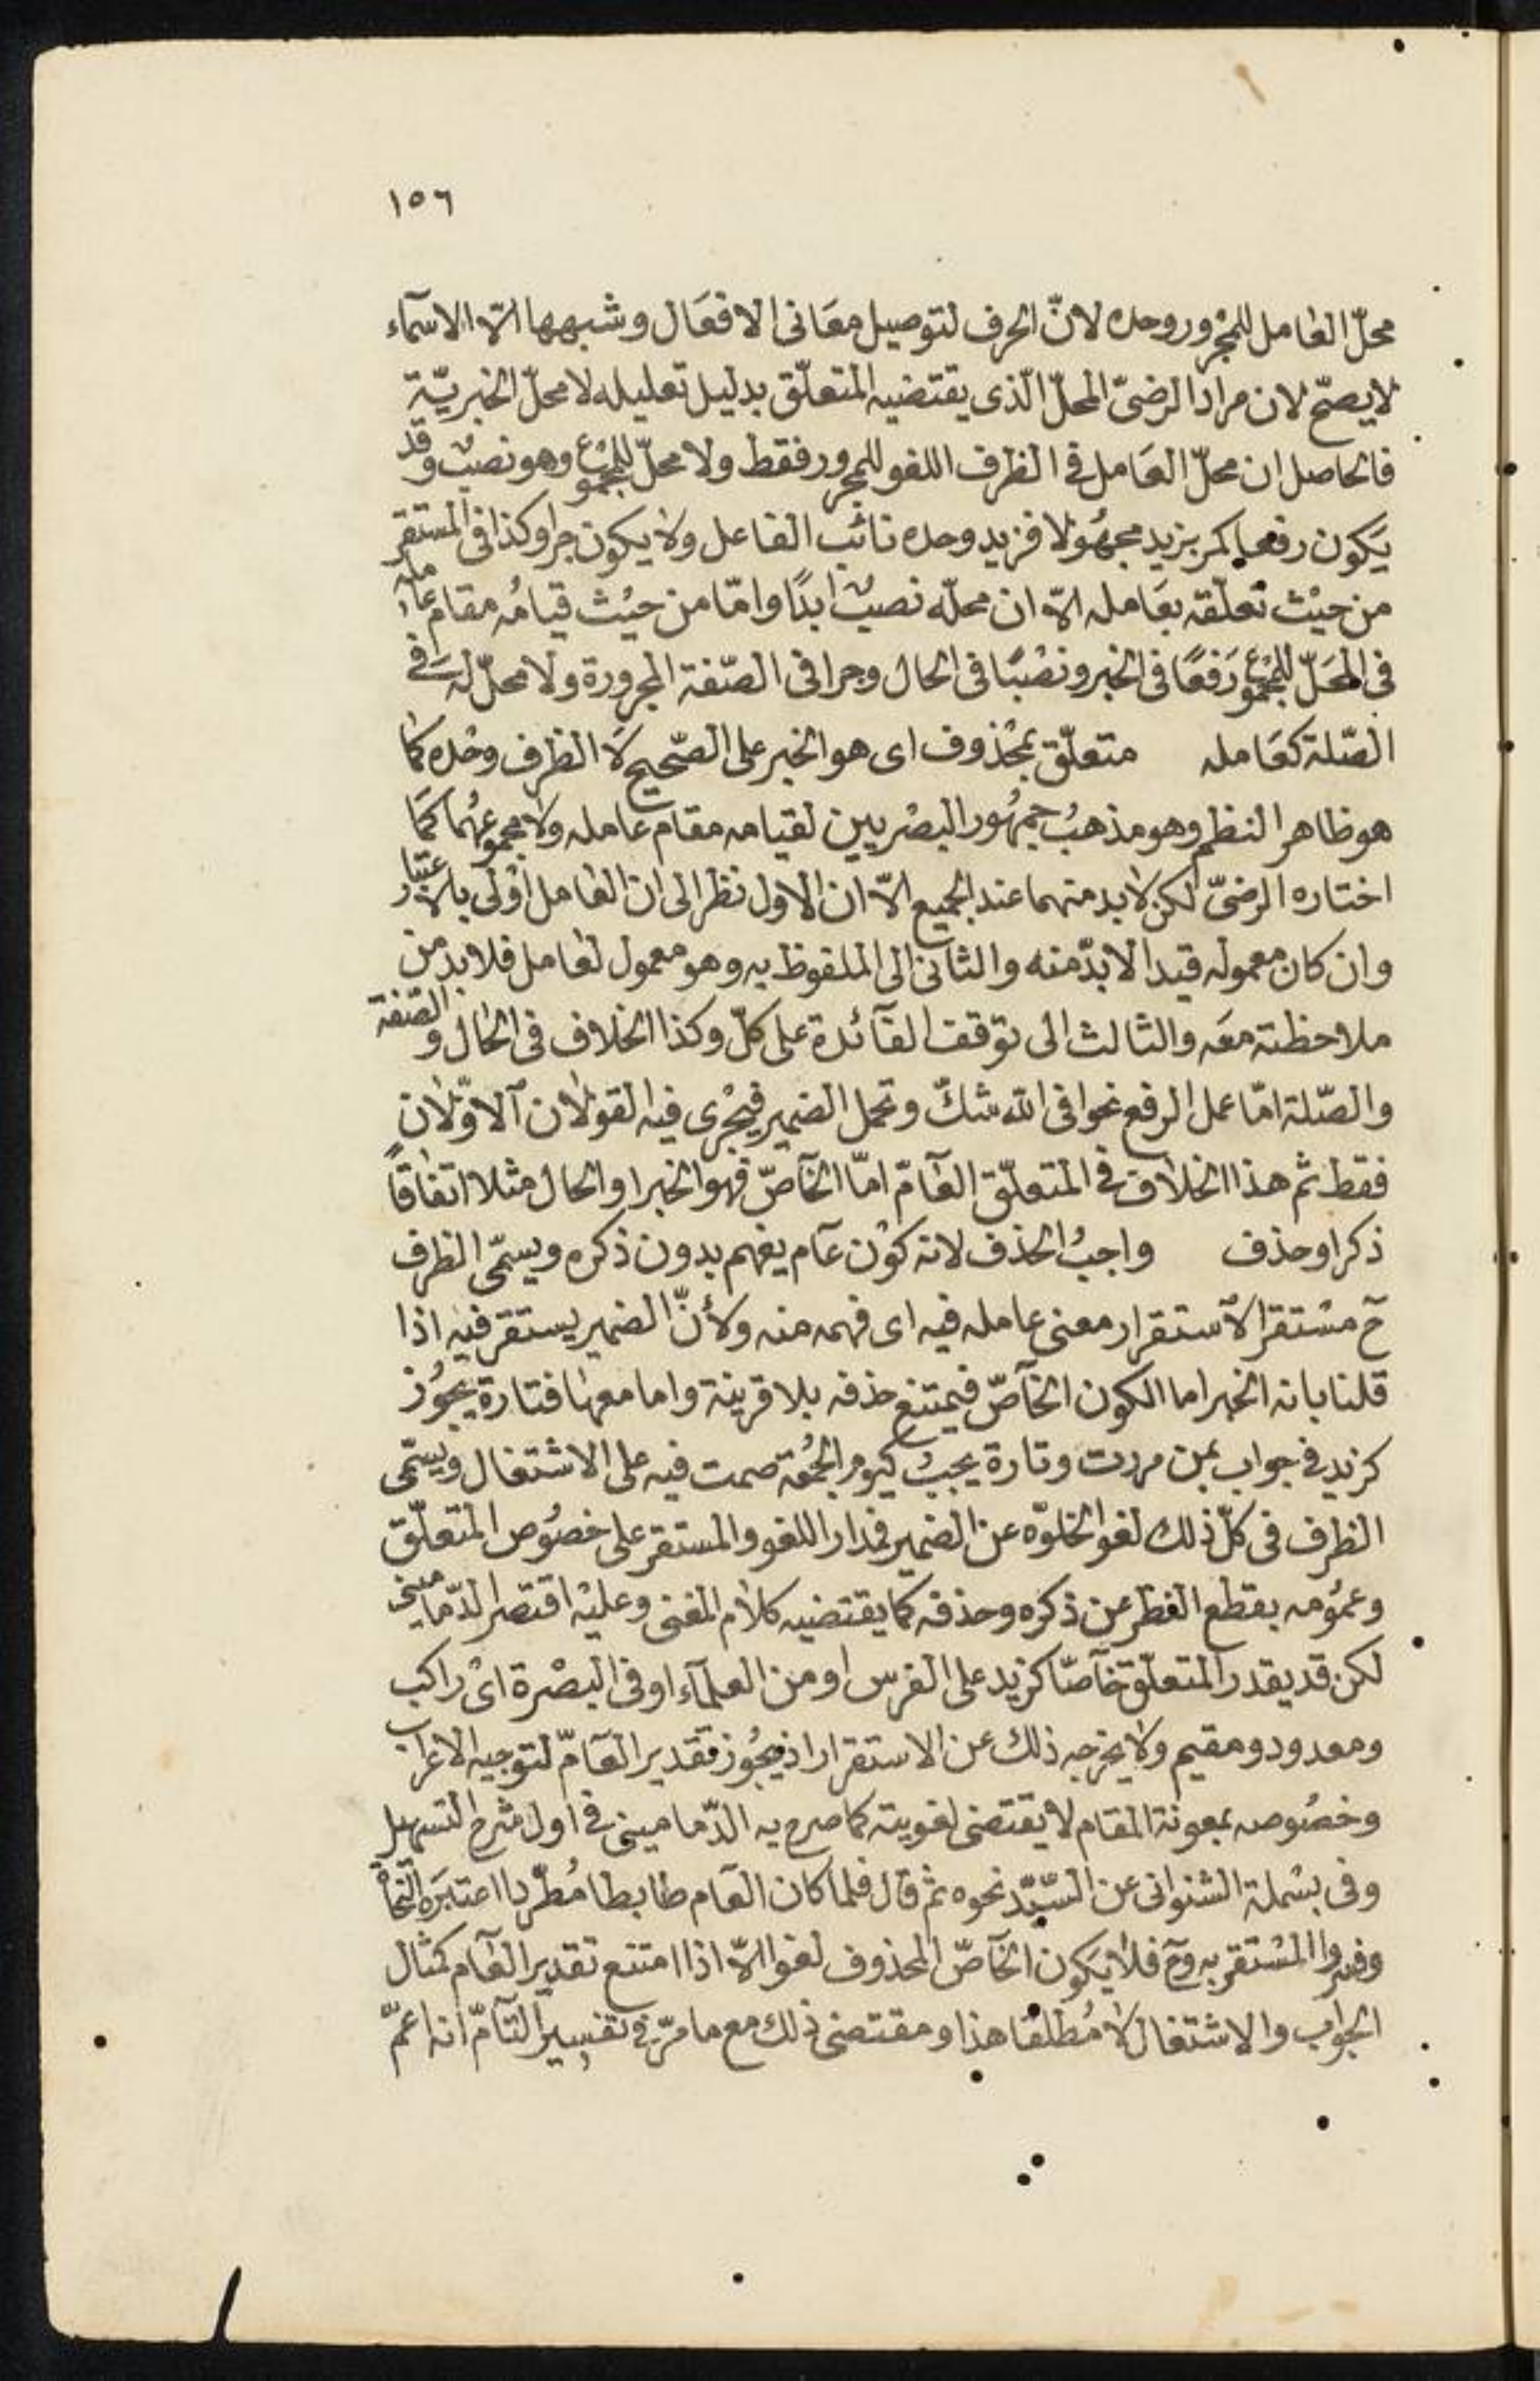 ١٥٦
محلّ العامل للمجرور وحده لانّ الحرف لتوصيل معَانى الافعَال وشبهها الّا الاسمآء
لا يصحّ لان مراد الرضىّ المحلّ الّذى يقتضيه المتعلّق بدليل تعليله لا محلّ الخبريّة
فالحاصل ان محلّ العَامل فى الظرف اللغو للمجرور فقط ولا محلّ للمجموع وهو نصب وقد
يَكون رفعا كمر بزيد مجهُولا فزيد وحده نائب الفاعل ولا يكون جرا وكذا فى المستقر
من حيْث تعلّقه بعَامله الّا ان محلّه نصب ابدًا وامّا من حيْث قيامُه مقام عامله
فى المحَلّ للمجموع رَفعًا فى الخبر ونصْبًا فى الحال وجرا فى الصّفة المجرورة ولا محلّ له فى
الصّلة كعَامله متعلّق بمحْذوف اى هو الخبر على الصّحيح لَا الظرف وحْده كما
هو ظاهر النظم وهو مذهبُ جمهُور البصْريين لقيامه مقام عامله ولا مجموعهُما كمَا
اختاره الرضىّ لكن لا بد منهما عند الجميع الّا ان الاول نظر الى ان العامل اوْلى بالاعتبار
وان كان معموله قيدا لا بدّ منه والثانى الى الملفوظ به وهو معمول لعامل فلا بد من
ملاحظته معَه والثالث الى توقف الفآئدة على كلّ وكذا الخلاف فى الحال والصّفة
والصّلة امّا عمل الرفع نحو افى الله شكّ وتحمل الضمير فيجْرى فيه القولان الاوّلان
فقط ثم هذا الخلاف فى المتعلّق العآمّ امّا الخآصّ فهو الخبر او الحال مثلا اتفاقًا
ذكر او حذف واجبُ الحذف لانه كوْن عآم يفهم بدون ذكره ويسمّى الظرف
ح مسْتقرا لاستقرار معنى عامله فيه اى فهمه منه ولأنّ الضمير يستقر فيه اذا
قلنا بانه الخبر اما الكون الخآصّ فيمتنع حذفه بلا قرينة واما معها فتارة يجوُز
كزيد فى جواب بمن مررت وتارة يجبُ كيوم الجمُعَة صمت فيه على الاشتغال ويسَمّى
الظرف فى كلّ ذلك لغوا لخلوّه عن الضمير فمدار اللغو والمستقر على خصُوص المتعلّق
وعمُومه بقطع النظر عن ذكره وحذفه كما يقتضيه كلام المغنى وعليْه اقتصر الدّمامينى
لكن قد يقدر المتعلّق خآصّا كزيد على الفرس او من العلمآء او فى البصْرة اىْ راكب
ومعدود ومقيم ولا يخرجه ذلك عن الاستقرار اذ يجوُز تقدير العَآمّ لتوجيه الاعراب
وخصُوصه بمعونة المقام لا يقتضى لغويته كما صرح به الدّمامينى فى اول شرح التسهيل
وفى بسْملة الشنوانى عن السّيّد نحوه ثم قال فلما كان العآم ضابطا مُطّردا اعتبَره النحاة
وفسّروا المسْتقر به وح فلا يَكون الخآصّ المحذوف لغوا الّا اذا امتنع تقدير العآم كمثال
الجواب والاشتغال لا مُطلقا هذا ومقتضى ذلك مع ما مرّ فى تفسير التآمّ انه اعمّ